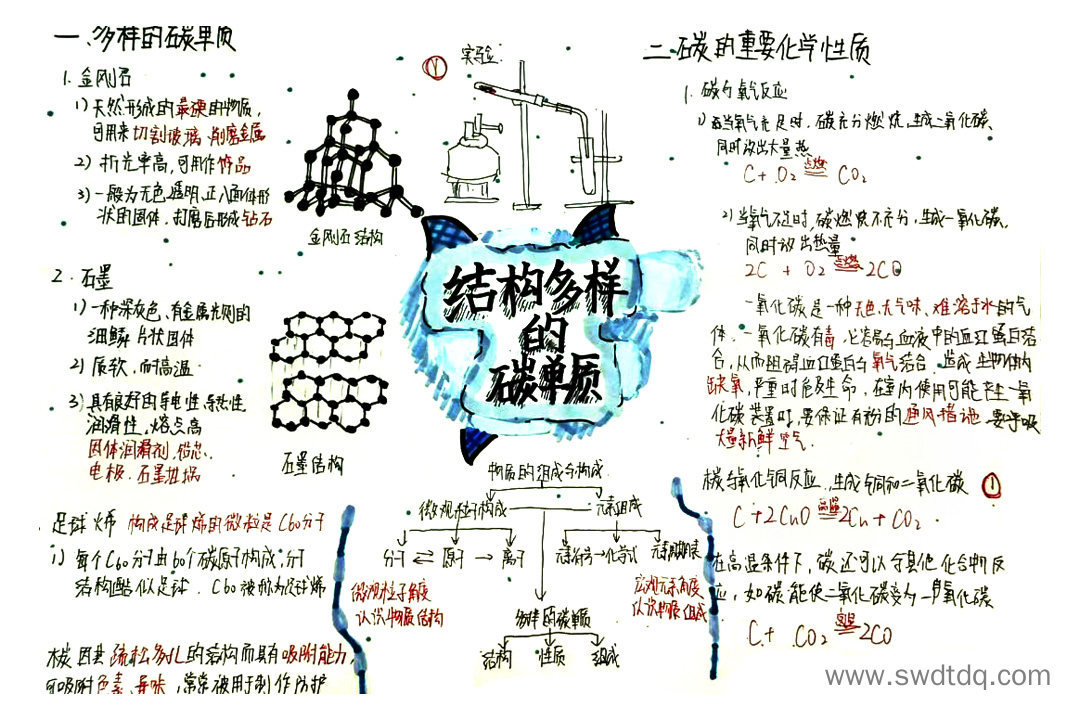 一、多样的碳单质
1. 金刚石
1) 天然形成的最硬的物质,
可用来切割玻璃、削磨金属
2) 折光率高,可用作饰品
3) 一般为无色透明,正八面体形
状的固体,打磨后形成钻石
金刚石结构
2. 石墨
1) 一种深灰色、有金属光泽的
细鳞片状固体
2) 质软,耐高温
3) 具有良好的导电性、导热性
润滑性、熔点高
固体润滑剂、铅芯、
电极、石墨坩埚
石墨结构
足球烯 构成足球烯的微粒是C60分子
1) 每个C60分子由60个碳原子构成,分子
结构酷似足球. C60被称为足球烯
木炭因其疏松多孔的结构而具有吸附能力,
可吸附色素、异味,常常被用于制作防护
① 实验:
结构多样
的
碳单质
物质的组成与构成
微观粒子构成 元素组成
分子 ⇌ 原子 → 离子
元素符号→化学式 元素周期表
微观粒子角度
认识物质结构
宏观元素角度
认识物质组成
多样的碳单质
结构 性质 组成
二、碳的重要化学性质
1. 碳与氧气反应
1) 当氧气充足时,碳充分燃烧,生成二氧化碳,
同时放出大量热
C + O2 点燃 CO2
2) 当氧气不足时,碳燃烧不充分,生成一氧化碳,
同时放出热量
2C + O2 点燃 2CO
一氧化碳是一种无色、无气味、难溶于水的气
体,一氧化碳有毒,它容易与血液中的血红蛋白结
合,从而阻碍血红蛋白与氧气结合,造成生物体内
缺氧,严重时危及生命,在室内使用可能产生一氧
化碳装置时,要保证有効的通风措施,要呼吸
大量新鲜空气.
碳与氧化铜反应,生成铜和二氧化碳 ①
C + 2CuO 高温 2Cu + CO2
在高温条件下,碳还可以与其他化合物反
应,如碳能使二氧化碳变为一氧化碳
C + CO2 高温 2CO
www.swdtdq.com